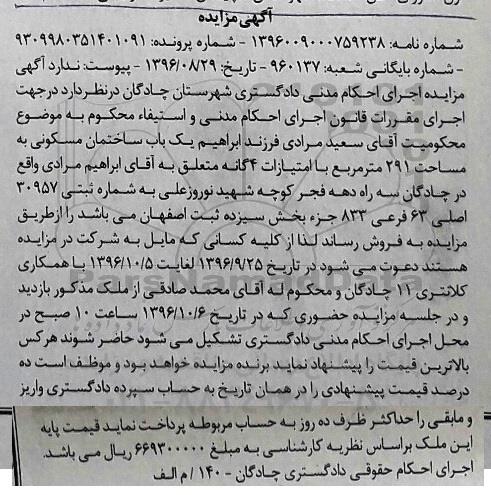 آگهی مزایده
شماره نامه: ۱۳۹۶۰۰۹۰۰۰۷۵۹۲۳۸ - شماره پرونده: ۹۳۰۹۹۸۰۳۵۱۴۰۱۰۹۱
- شماره بایگانی شعبه: ۹۶۰۱۳۷ - تاریخ: ۱۳۹۶/۰۸/۲۹ - پیوست: ندارد آگهی
مزایده اجرای احکام مدنی دادگستری شهرستان چادگان درنظردارد درجهت
اجرای مقررات قانون اجرای احکام مدنی و استیفاء محکوم به موضوع
محکومیت آقای سعید مرادی فرزند ابراهیم یک باب ساختمان مسکونی به
مساحت ۲۹۱ مترمربع با امتیازات ۴گانه متعلق به آقای ابراهیم مرادی واقع
در چادگان سه راه دهه فجر کوچه شهید نوروزعلی به شماره ثبتی ۳۰۹۵۷
اصلی ۶۳ فرعی ۸۳۳ جزء بخش سیزده ثبت اصفهان می باشد را ازطریق
مزایده به فروش رساند لذا از کلیه کسانی که مایل به شرکت در مزایده
هستند دعوت می شود در تاریخ ۱۳۹۶/۹/۲۵ لغایت ۱۳۹۶/۱۰/۵ با همکاری
کلانتری ۱۱ چادگان و محکوم له آقای محمد صادقی از ملک مذکور بازدید
و در جلسه مزایده حضوری که در تاریخ ۱۳۹۶/۱۰/۶ ساعت ۱۰ صبح در
محل اجرای احکام مدنی دادگستری تشکیل می شود حاضر شوند هرکس
بالاترین قیمت را پیشنهاد نماید برنده مزایده خواهد بود و موظف است ده
درصد قیمت پیشنهادی را در همان تاریخ به حساب سپرده دادگستری واریز
و مابقی را حداکثر ظرف ده روز به حساب مربوطه پرداخت نماید قیمت پایه
این ملک براساس نظریه کارشناسی به مبلغ ۶۶۹۳۰۰۰۰۰ ریال می باشد.
اجرای احکام حقوقی دادگستری چادگان - ۱۴۰ / م الف